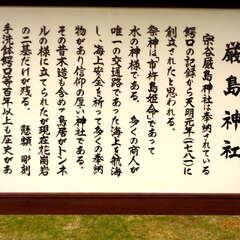 厳島神社
宗谷厳島神社は奉納されている
鰐口の記録から天明元年(一七八一)に
創立されたと思われる。
祭神は「市杵島姫命」であって
水の神様である。多くの商人が
唯一の交通路であった海上を航海
し、海上安全を祈って多くの奉納
物があり信仰の厚い神社である。
その昔木造も含め鳥居がトンネ
ルの様に立てられたが現在花崗岩
の二基だけが残る。懸額、彫刻
手洗鉢鰐口等百年以上も歴史があ